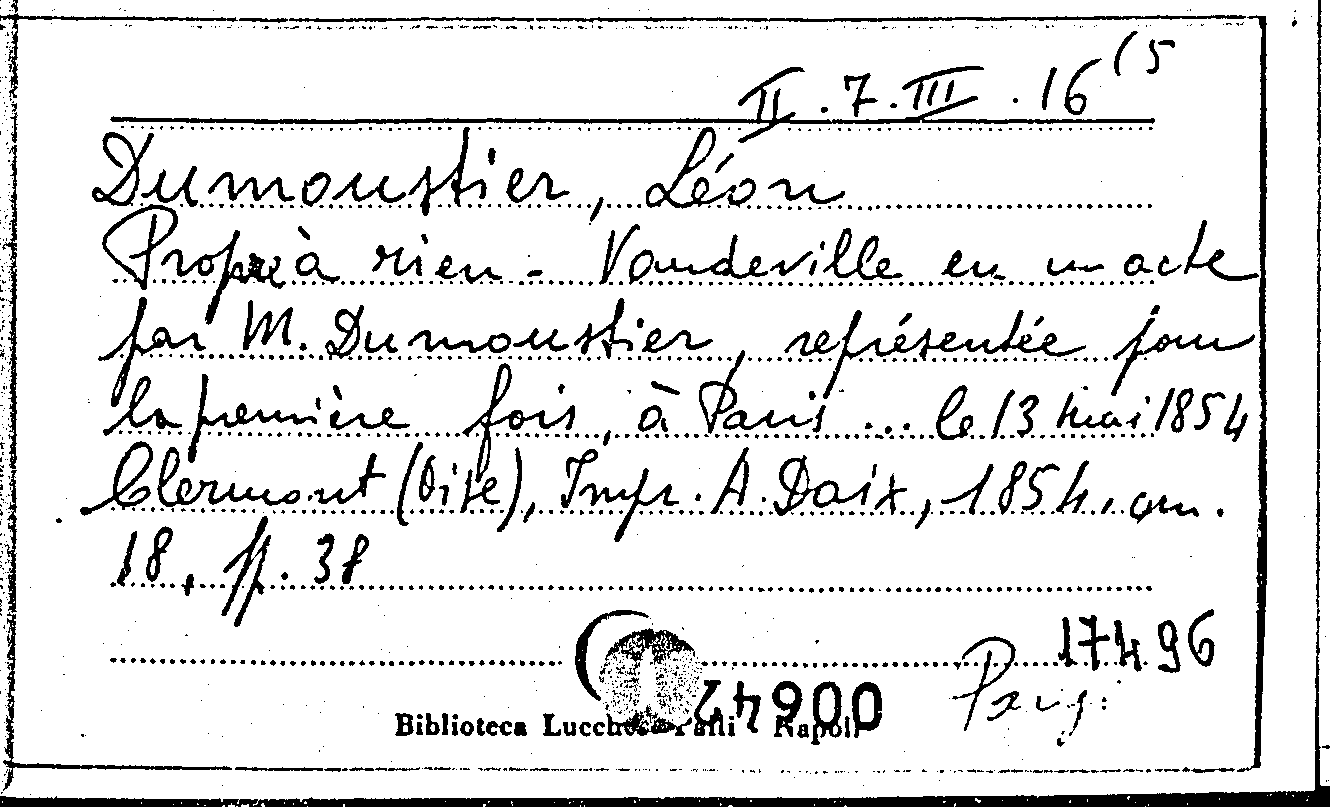 II.7.III.16(5
Dumoustier, Léon
Propre à rien - Vaudeville en un acte
par M. Dumoustier, représentée pour
la première fois, à Paris ... le 13 mai 1854
Clermont (Oise), Impr. A. Daix, 1854, cm.
18, pp. 38
17496
006442
Biblioteca Lucchesi Palli - Napoli